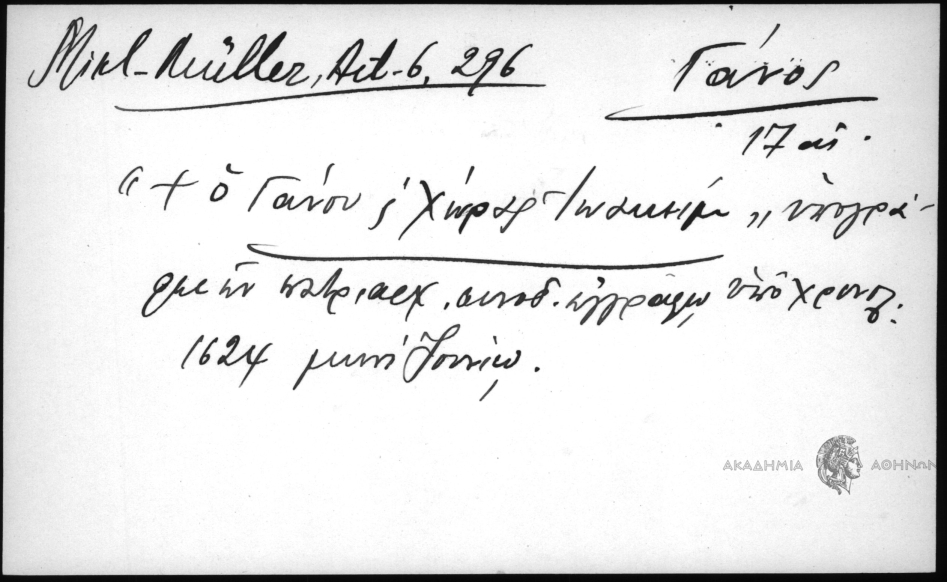 Mikl-Müller, Act. 6, 296
Γάνος
17 αἰ.
"+ ὁ Γάνου ϛ Χώρας Ἰωακείμ„ ὑπογρά-
φει ἐν πατριαρχ. συνοδ. ἐγγράφῳ ὑπὸ χρονολ.
1624 μηνὶ Ἰουνίῳ.
ΑΚΑΔΗΜΙΑ ΑΘΗΝΩΝ